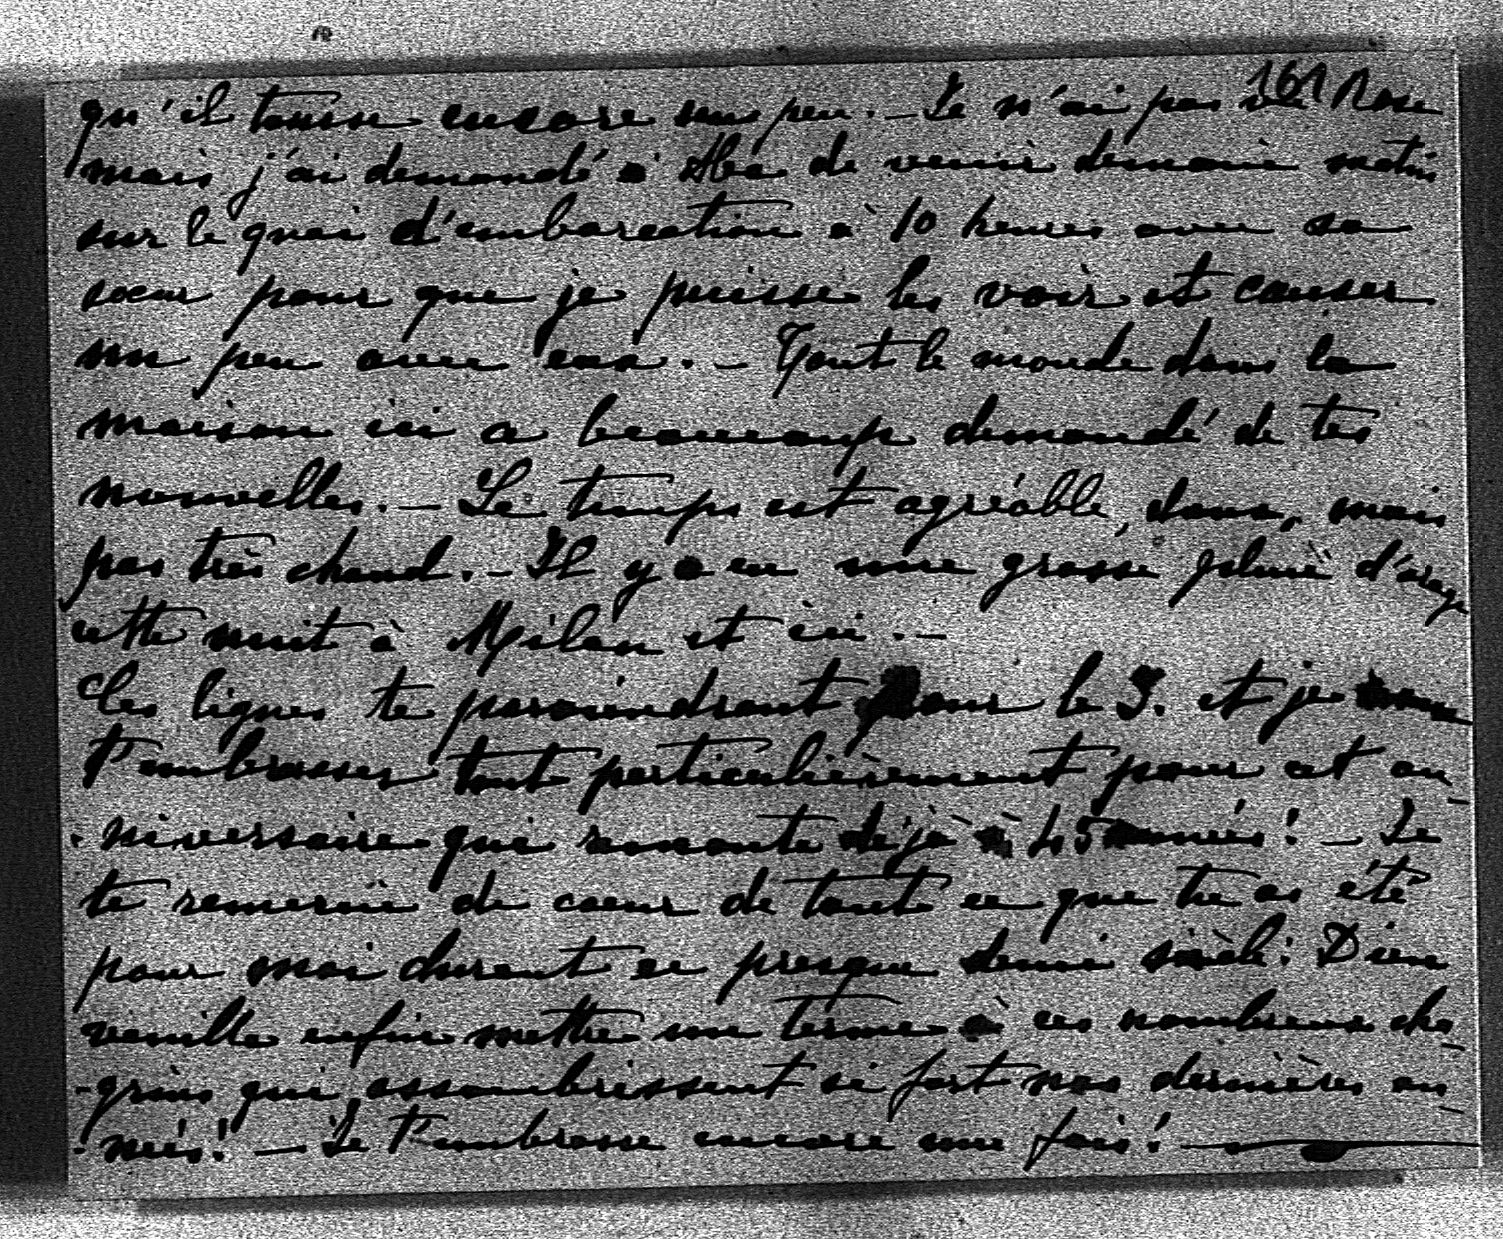 161
qu'il tousse encore un peu. – Je n'ai pas vu Rose
mais j'ai demandé à de venir demain matin
sur le quai d'embarcation à 10 heures avec sa
sœur pour que je puisse les voir et causer
un peu avec eux. – Tout le monde dans la
maison ici a beaucoup demandé de tes
nouvelles. – Le temps est agréable, doux, mais
pas très chaud. – Il y a eu une grosse pluie d'orage
cette nuit à Milan et ici. –
Ces lignes te parviendront pour le 3. et je
t'embrasser tout particulièrement pour cet an-
-niversaire qui remonte déjà à 45 années! – Je
te remercie de cœur de tout ce que tu as été
pour moi durant ce presque demi siècle: Dieu
veuille enfin mettre un terme à ces nombreux cha-
-grins qui assombrissent si fort nos dernières an-
-nées! – Je t'embrasse encore une fois! –